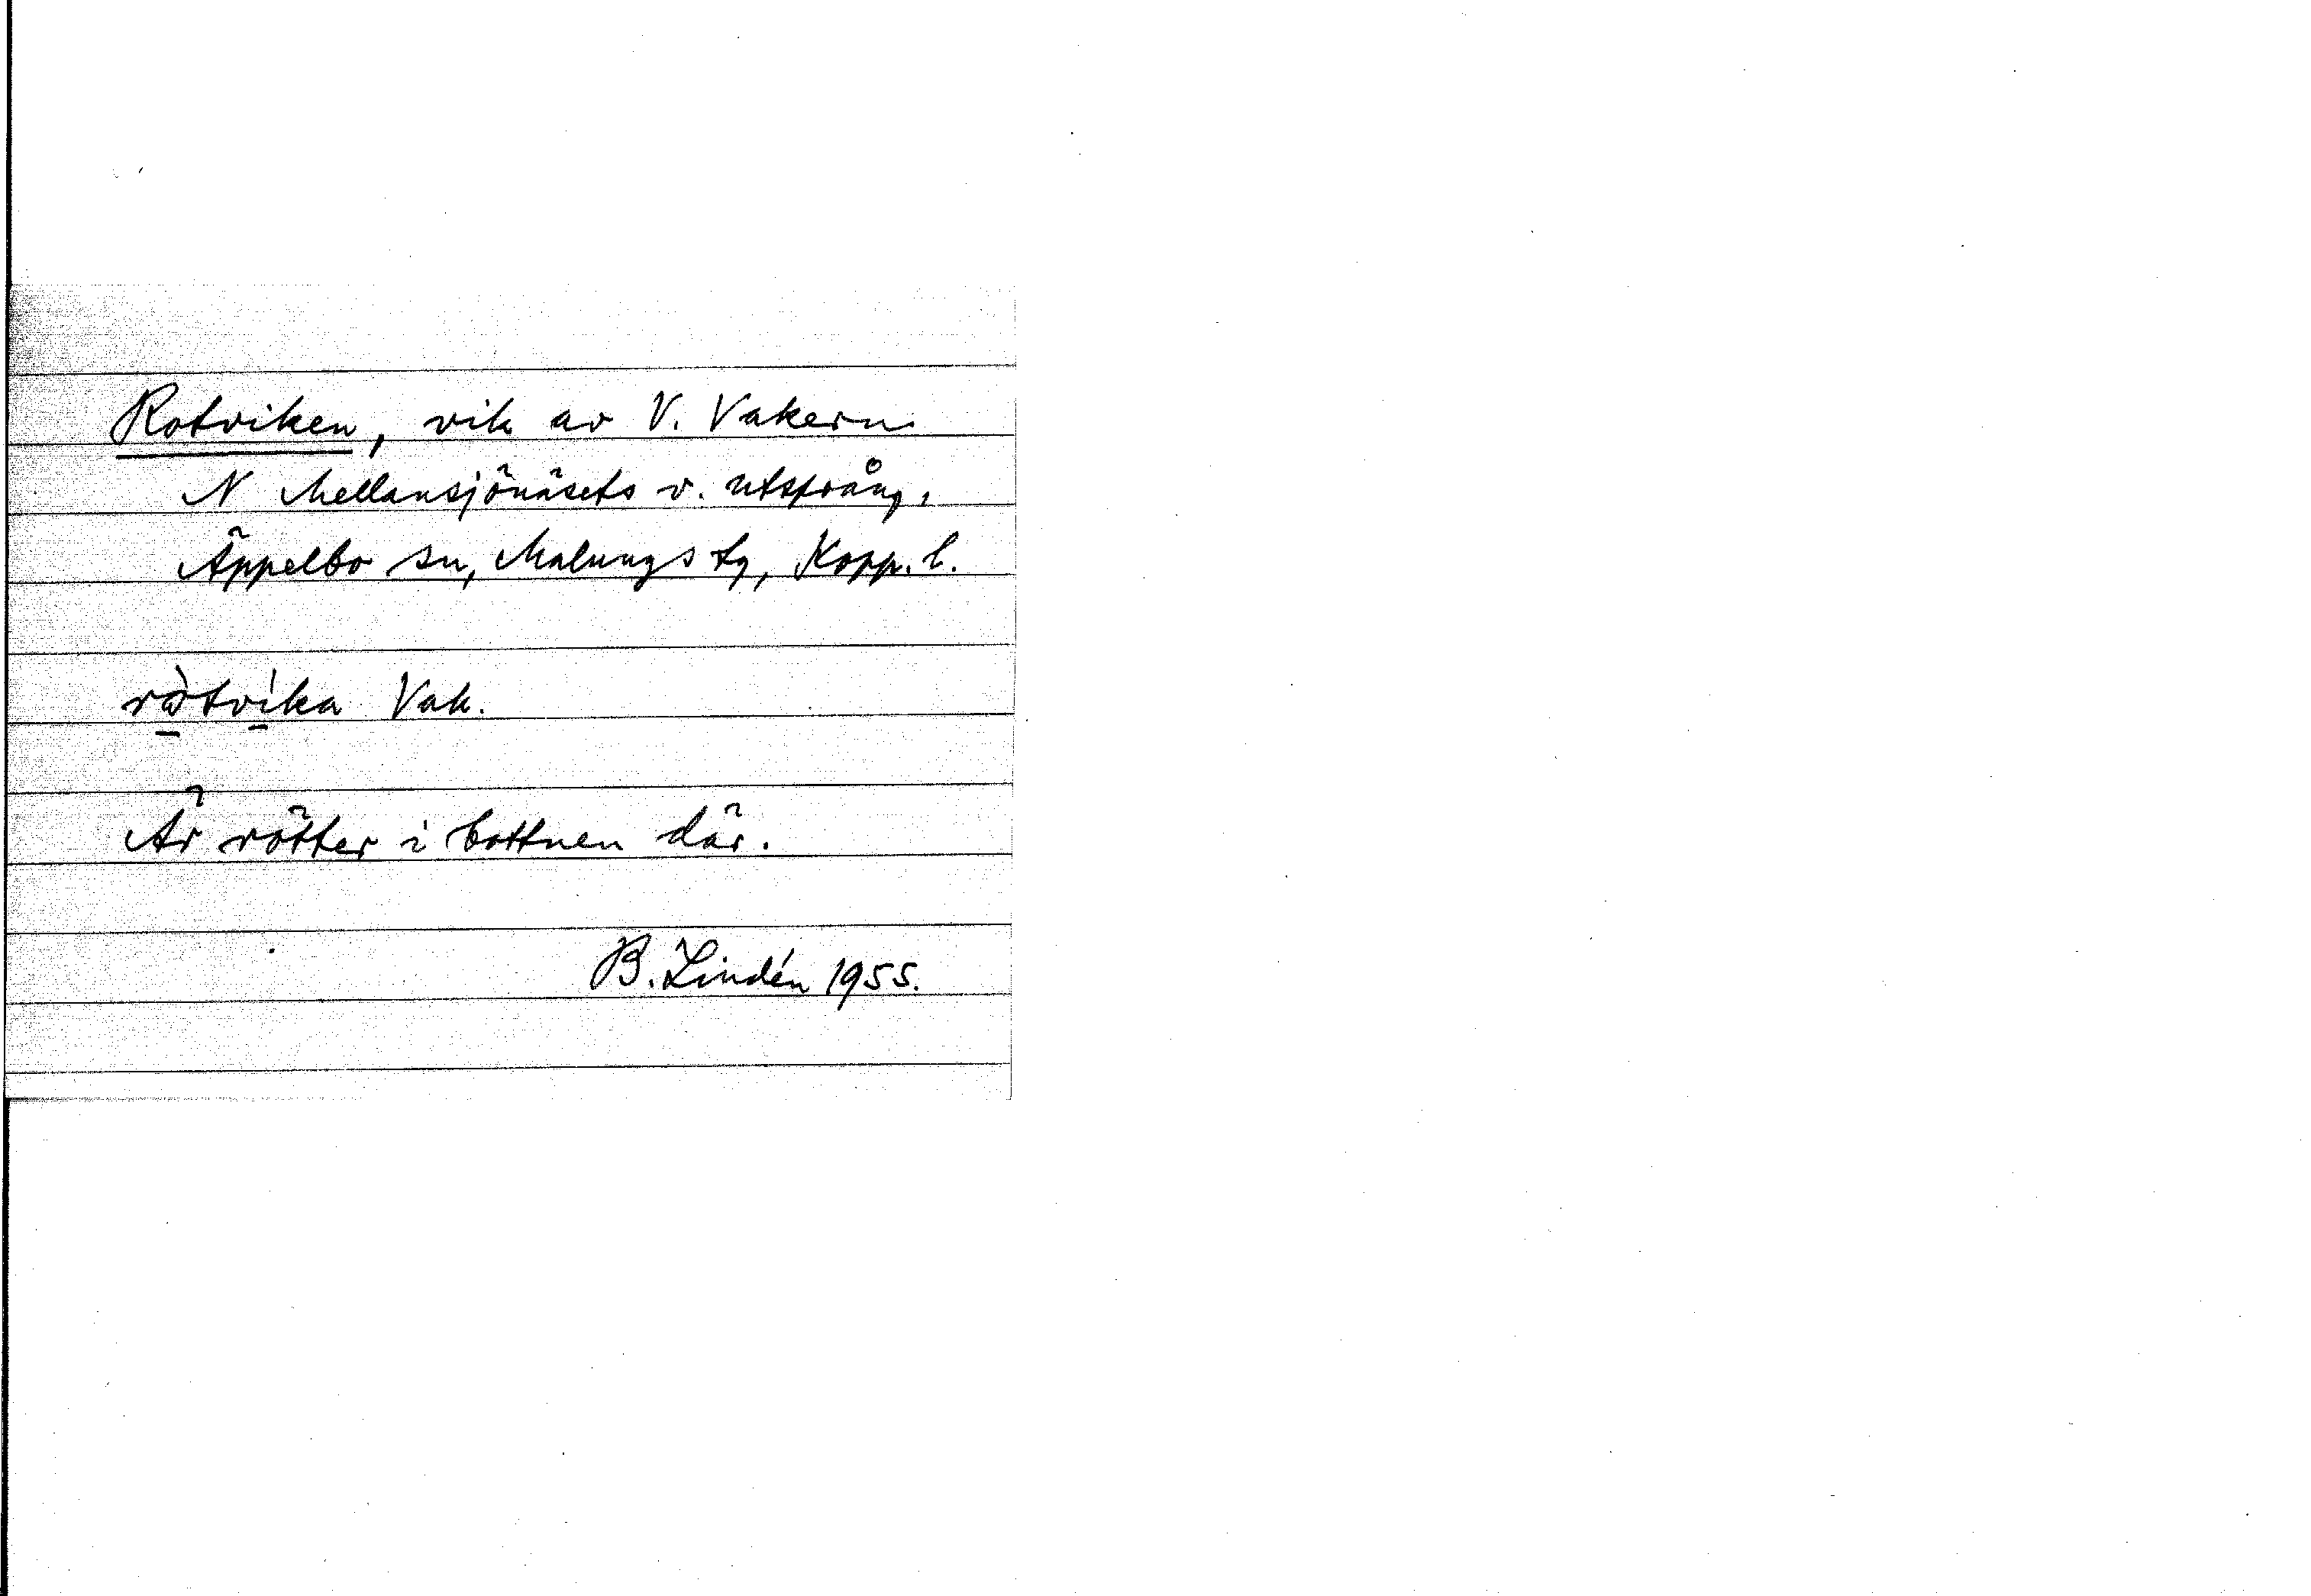 Rotviken, vik av V. Vakern
N Mellansjönäsets v. utsprång,
Äppelbo sn, Malungs tg, Kopp. l.
ròtvìka Vak.
Är rötter i bottnen där.
B. Lindén 1955.